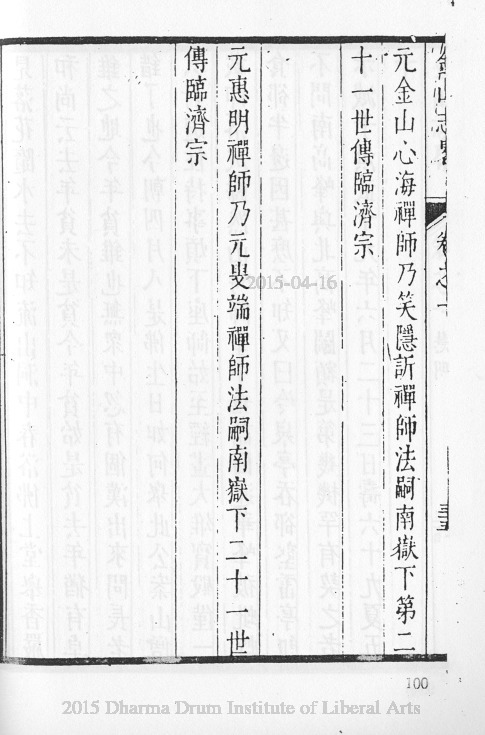 金山志畧
卷之
元金山心海禪師乃笑隱訢禪師法嗣南嶽下第二
十一世傳臨濟宗
元惠明禪師乃元叟端禪師法嗣南嶽下二十一世
傳臨濟宗
2015-04-16
100
2015 Dharma Drum Institute of Liberal Arts